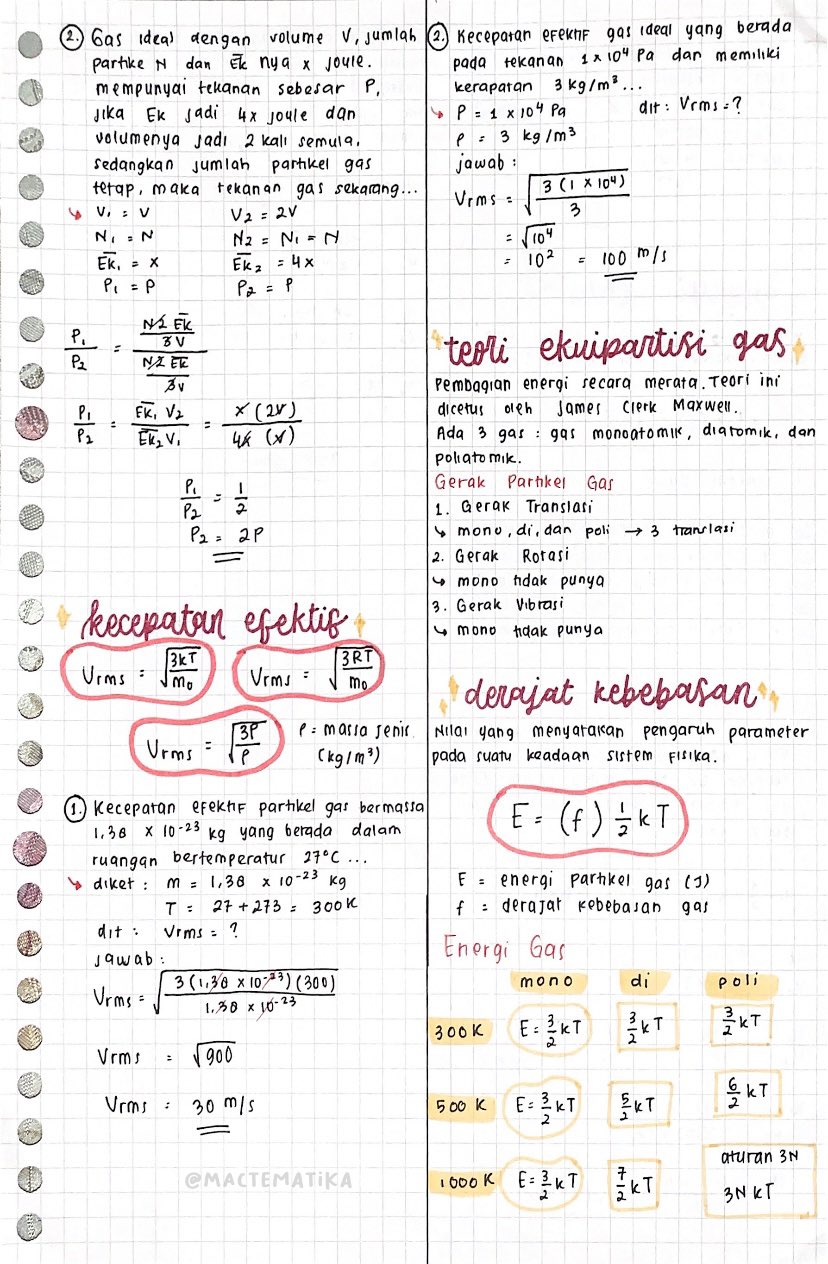 2. Gas ideal dengan volume V, jumlah
partikel N dan E̅k̅ nya x joule.
mempunyai tekanan sebesar P,
jika Ek jadi 4x joule dan
volumenya jadi 2 kali semula,
sedangkan jumlah partikel gas
tetap, maka tekanan gas sekarang...
↳ V₁ = V V₂ = 2V
N₁ = N N₂ = N₁ = N
E̅k̅₁ = x E̅k̅₂ = 4x
P₁ = P P₂ = P
P₁/P₂ = (N 2 E̅k̅ / 3V) / (N 2 E̅k̅ / 3V)
P₁/P₂ = E̅k̅₁ V₂ / E̅k̅₂ V₁ = x (2V) / 4x (V)
P₁/P₂ = 1/2
P₂ = 2P
kecepatan efektif
Vrms = √(3kT/m₀) Vrms = √(3RT/m₀)
Vrms = √(3P/ρ) ρ = massa jenis
(kg/m³)
1. Kecepatan efektif partikel gas bermassa
1,38 x 10⁻²³ kg yang berada dalam
ruangan bertemperatur 27°C ...
↳ diket : m = 1,38 x 10⁻²³ kg
T = 27 + 273 = 300K
dit : Vrms = ?
jawab :
Vrms = √(3 (1,38 x 10⁻²³) (300) / 1,38 x 10⁻²³)
Vrms = √900
Vrms = 30 m/s
@MACTEMATiKA
2. Kecepatan efektif gas ideal yang berada
pada tekanan 1 x 10⁴ Pa dan memiliki
kerapatan 3 kg/m³...
↳ P = 1 x 10⁴ Pa dit : Vrms = ?
ρ = 3 kg/m³
jawab :
Vrms = √(3 (1 x 10⁴) / 3)
= √10⁴
= 10² = 100 m/s
teori ekuipartisi gas
Pembagian energi secara merata. Teori ini
dicetus oleh James Clerk Maxwell.
Ada 3 gas : gas monoatomik, diatomik, dan
poliatomik.
Gerak Partikel Gas
1. Gerak Translasi
↳ mono, di, dan poli → 3 translasi
2. Gerak Rotasi
↳ mono tidak punya
3. Gerak Vibrasi
↳ mono tidak punya
derajat kebebasan
Nilai yang menyatakan pengaruh parameter
pada suatu keadaan sistem fisika.
E = (f) 1/2 kT
E = energi partikel gas (J)
f = derajat kebebasan gas
Energi Gas
mono di poli
300K E = 3/2 kT 3/2 kT 3/2 kT
500 K E = 3/2 kT 5/2 kT 6/2 kT
1000 K E = 3/2 kT 7/2 kT aturan 3N
3N kT